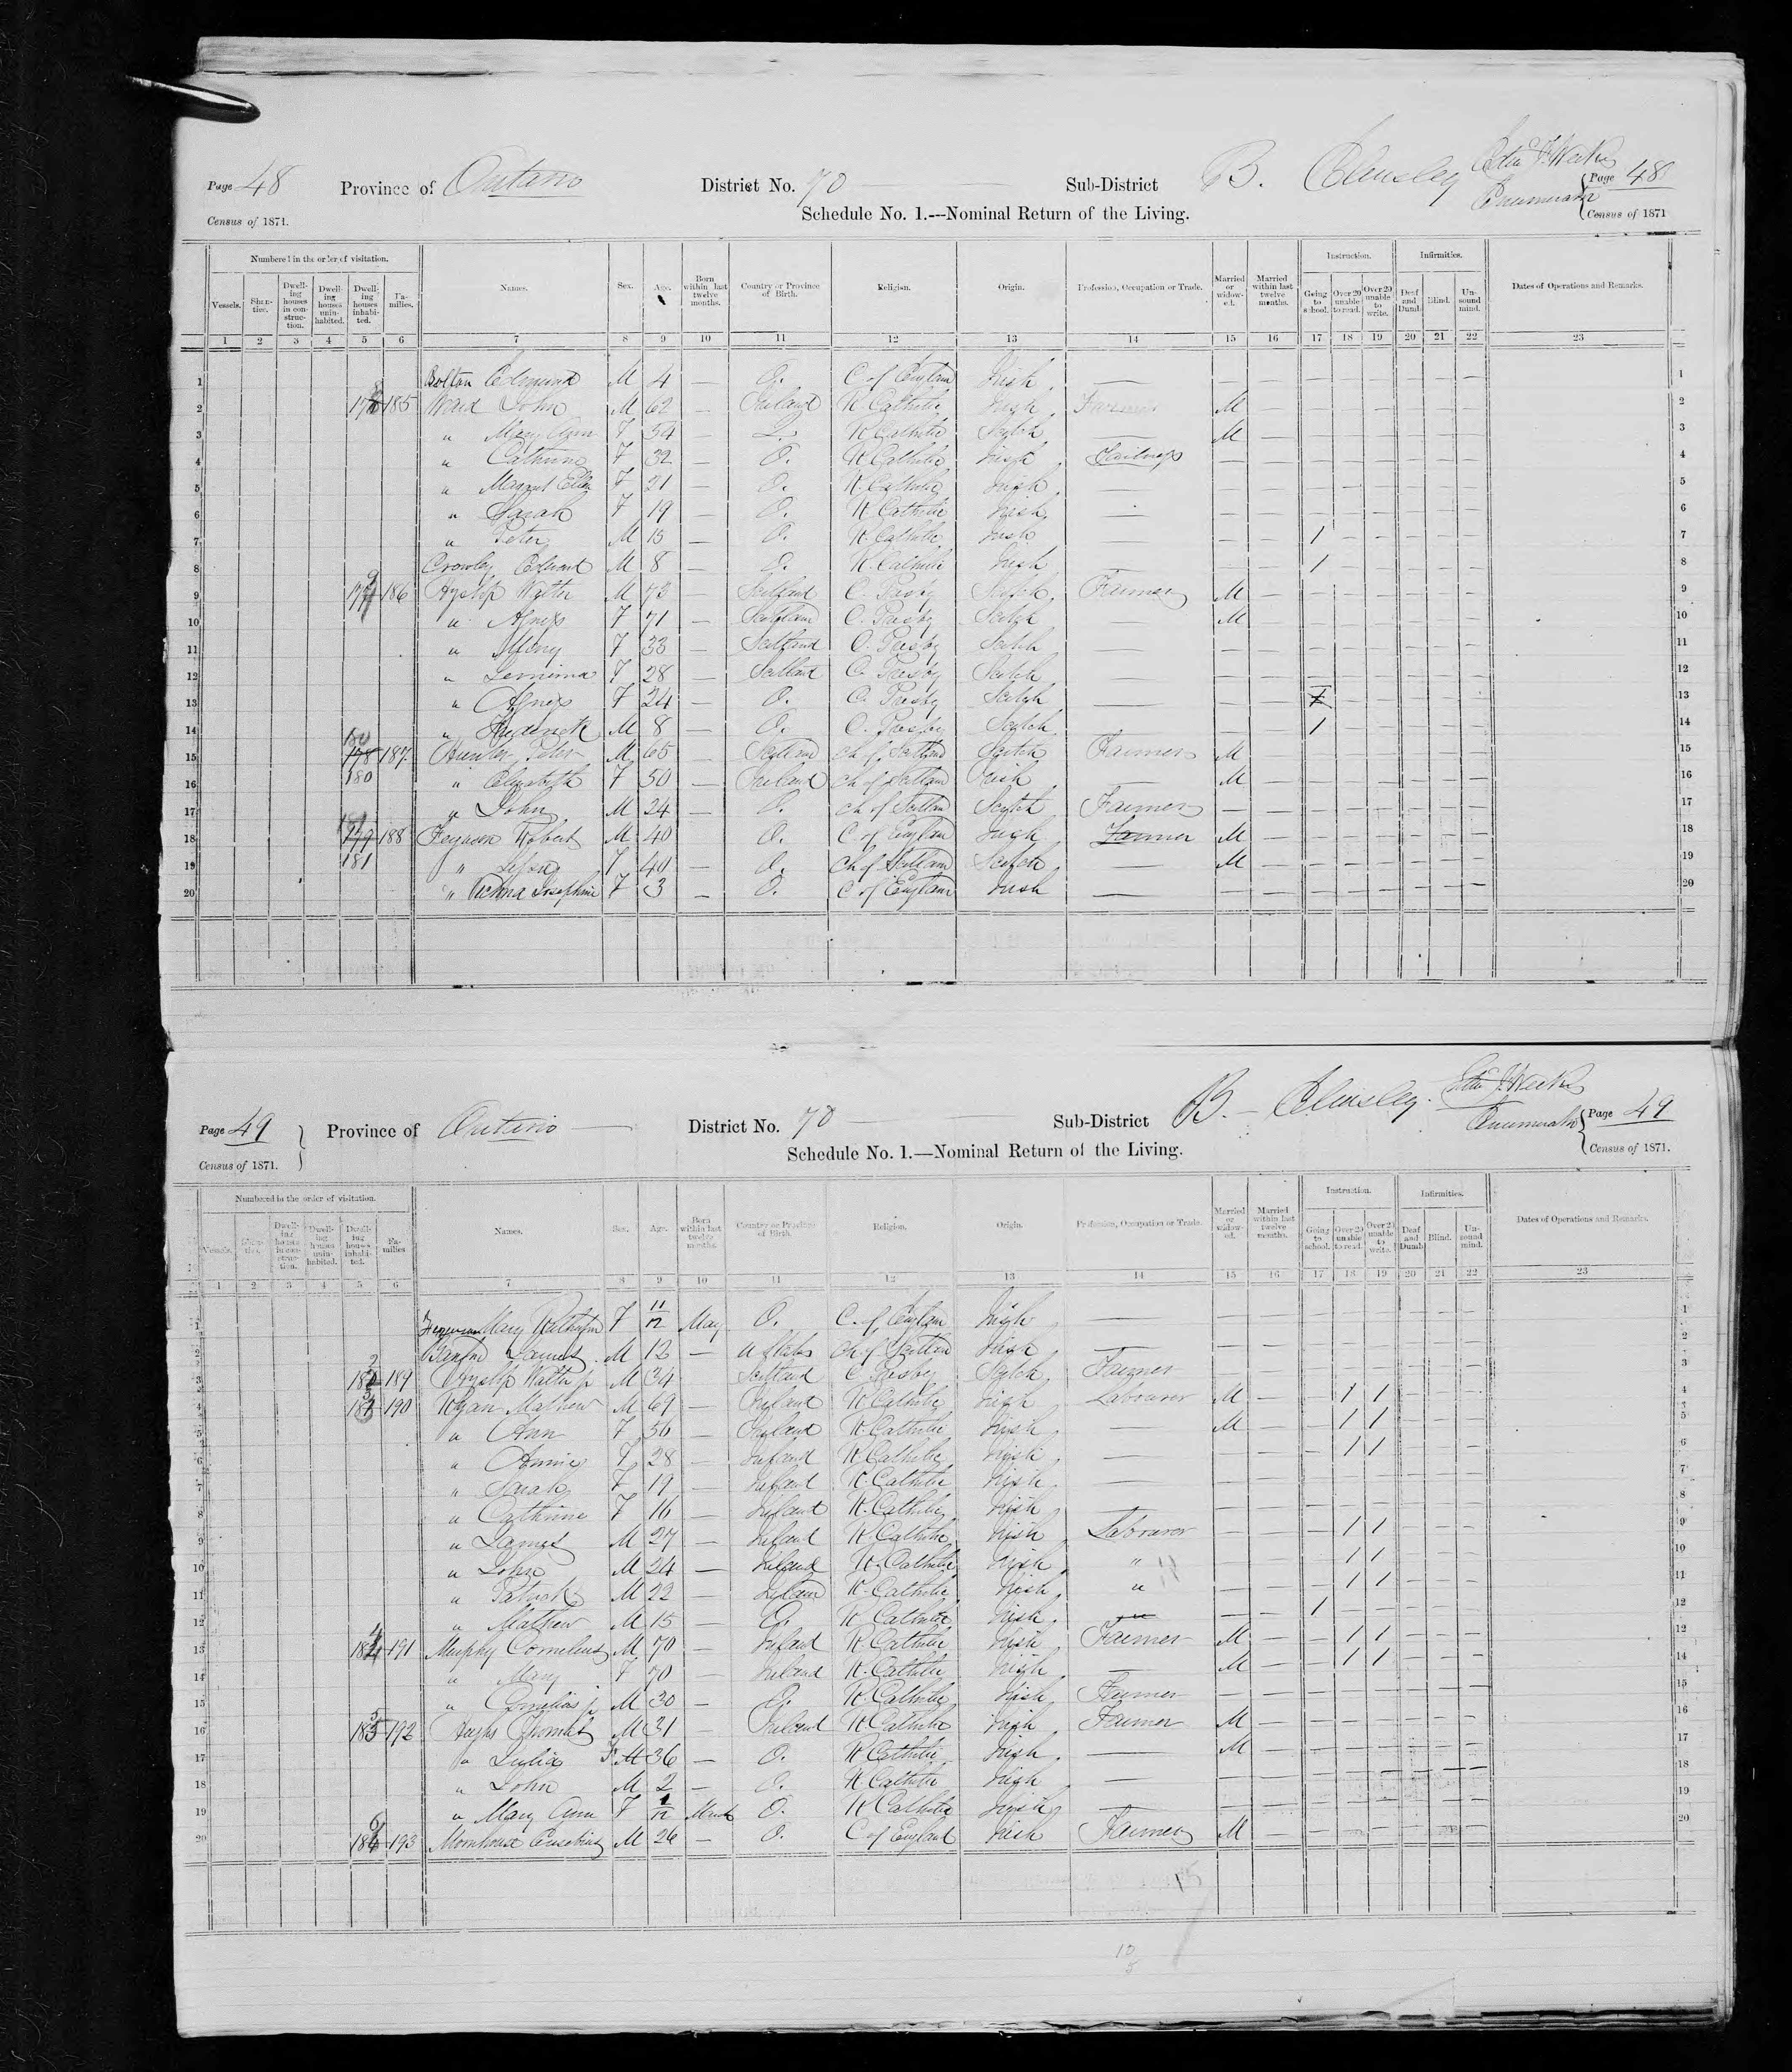 Page 48 Province of Ontario District No. 70 Sub-District B. Elmsley Page 48
Enumerator
Census of 1871. Schedule No. 1.---Nominal Return of the Living. Census of 1871
Numbered in the order of visitation. Names. Sex. Age. Born within last twelve months. Country or Province of Birth. Religion. Origin. Profession, Occupation or Trade. Married or widowed. Married within last twelve months. Instruction. Infirmities. Dates of Operations and Remarks.
Vessels. Shanties. Dwelling houses in construction. Dwelling houses uninhabited. Dwelling houses inhabited. Families. Going to school. Over 20 unable to read. Over 20 unable to write. Deaf and Dumb. Blind. Unsound mind.
1 2 3 4 5 6 7 8 9 10 11 12 13 14 15 16 17 18 19 20 21 22 23
1 Bolton Edmund M 4 — O. C of England Irish — 1
2 185 Ward John M 62 — Ireland R Catholic Irish Farmer M — 2
3 " Mary Ann F 54 — R Catholic Scotch — M — 3
4 " Catherine F 32 — O. R Catholic Irish — 4
5 " Margret Ellen F 21 — O. R. Catholic Irish — 5
6 " Sarah F 19 — O. R Catholic Irish — 6
7 " Peter M 13 — O. R Catholic Irish — 1 7
8 Crowley Edward M 8 — O. R. Catholic Irish — 1 8
9 186 Hyslop Walter M 73 — Scotland C. Presby Scotch Farmer M — 9
10 " Agness F 71 — Scotland C. Presby Scotch — M — 10
11 " Mary F 33 — Scotland C. Presby Scotch — 11
12 " Jemima F 28 — Scotland C. Presby Scotch — 12
13 " Agness F 24 — O. C. Presby Scotch — 13
14 " Frederick M 8 — O. C. Presby Scotch — 1 14
15 178 180 187 Hunter Peter M 65 — Scotland Ch of Scotland Scotch Farmer M — 15
16 " Elizabeth F 50 — Ireland Ch of Scotland Irish — M — 16
17 " John M 24 — O. Ch of Scotland Scotch Farmer — 17
18 179 181 188 Ferguson Robert M 40 O. C of England Irish Farmer M — 18
19 " F 40 — O. Ch of Scotland Scotch — M — 19
20 " Victoria Josephine F 3 — O. C of England Irish — 20
Page 49 Province of Ontario District No. 70 Sub-District B. Elmsley. Page 49
Enumerator
Census of 1871. Schedule No. 1.—Nominal Return of the Living. Census of 1871.
Numbered in the order of visitation. Names. Sex. Age. Born within last twelve months. Country or Province of Birth. Religion. Origin. Profession, Occupation or Trade. Married or widowed. Married within last twelve months. Instruction. Infirmities. Dates of Operations and Remarks.
Vessels. Shanties. Dwelling houses in construction. Dwelling houses uninhabited. Dwelling houses inhabited. Families Going to school. Over 20 unable to read. Over 20 unable to write. Deaf and Dumb. Blind. Unsound mind.
1 2 3 4 5 6 7 8 9 10 11 12 13 14 15 16 17 18 19 20 21 22 23
1 Ferguson Mary F 11/12 May O. C. of England Irish — 1
2 James M 13 — U States Ch of Scotland Irish — 2
3 189 Hyslop Walter jr M 34 — Scotland C Presby Scotch Farmer — 3
4 190 Ryan Mathew M 69 — Ireland R Catholic Irish Labourer M — 1 1 — 4
5 " Ann F 56 — Ireland R Catholic Irish — M — 1 1 — 5
6 " Annie F 28 — Ireland R Catholic Irish — 1 1 — 6
7 " Sarah F 19 — Ireland R. Catholic Irish — 7
8 " Catherine F 16 — Ireland R. Catholic Irish — 8
9 " James M 27 — Ireland R. Catholic Irish Labourer — 1 1 — 9
10 " John M 24 — Ireland R. Catholic Irish " — 1 1 — 10
11 " Patrick M 22 — Ireland R. Catholic Irish " — 1 1 — 11
12 " Mathew M 15 — O. R Catholic Irish — 1 — 12
13 191 Murphy Cornelius M 70 — Ireland R Catholic Irish Farmer M — 1 1 — 12
14 " Mary F 70 — Ireland R. Catholic Irish — M — 1 1 — 14
15 " Cornelius jr M 30 — O. R. Catholic Irish Farmer — 15
16 192 Thomas M 31 — Ireland R Catholic Irish Farmer M — 16
17 " Julia F 36 — O. R Catholic Irish — M — 17
18 " John M 2 — O. R Catholic Irish — 18
19 " Mary Ann F 1/12 March O. R Catholic Irish — 19
20 193 Eusebius M 26 — O. C of England Irish Farmer M — 20